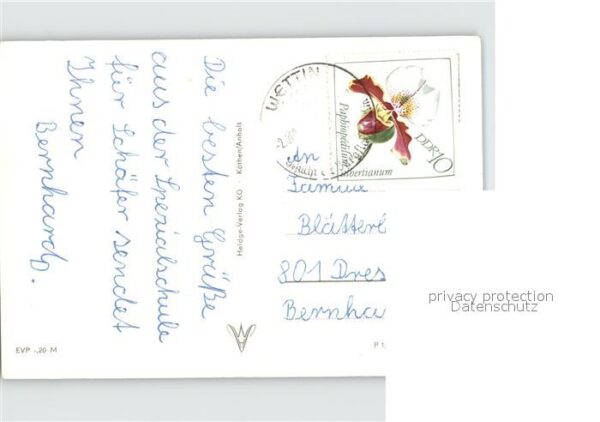 Die besten Grüße
aus der Spezialschule
für Schäfer sendet
Ihnen
Bernhard.
Heldge-Verlag KG Köthen/Anhalt
EVP -,20 M
WETTIN
Paphiopedilum
albertianum
DDR 10
An
Familie
Blätterl
801 Dres
Bernha
P 1
privacy protection
Datenschutz